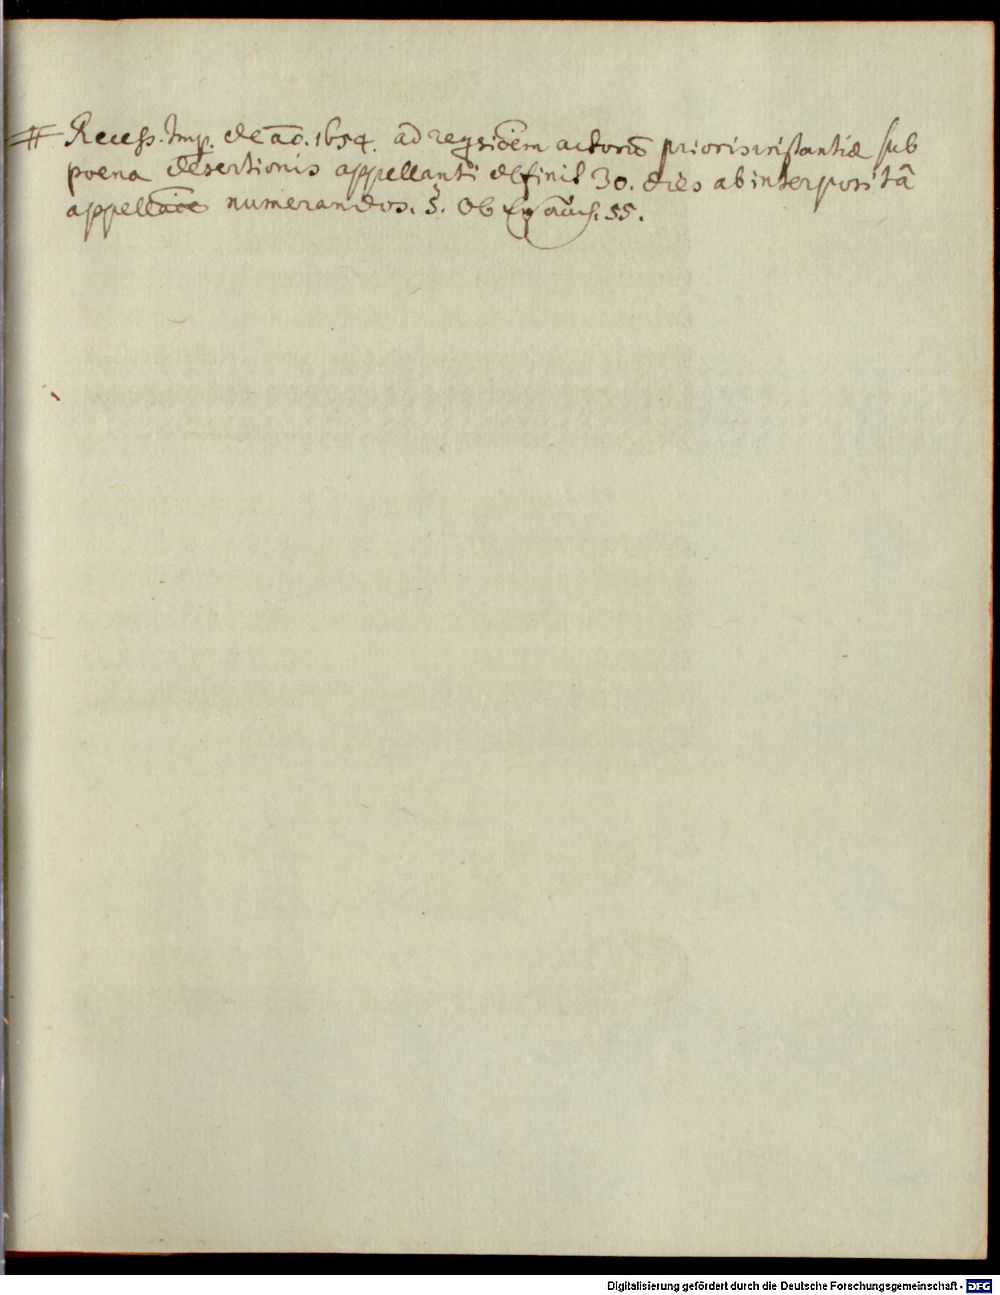 # Recess. Imp. de aõ. 1654. ad reqsiõem actorũ prioris instantiæ sub
poena desertionis appellanti definit 30. dies ab interpositâ
appellaõe numerandos. §. Ob 55.
Digitalisierung gefördert durch die Deutsche Forschungsgemeinschaft - DFG